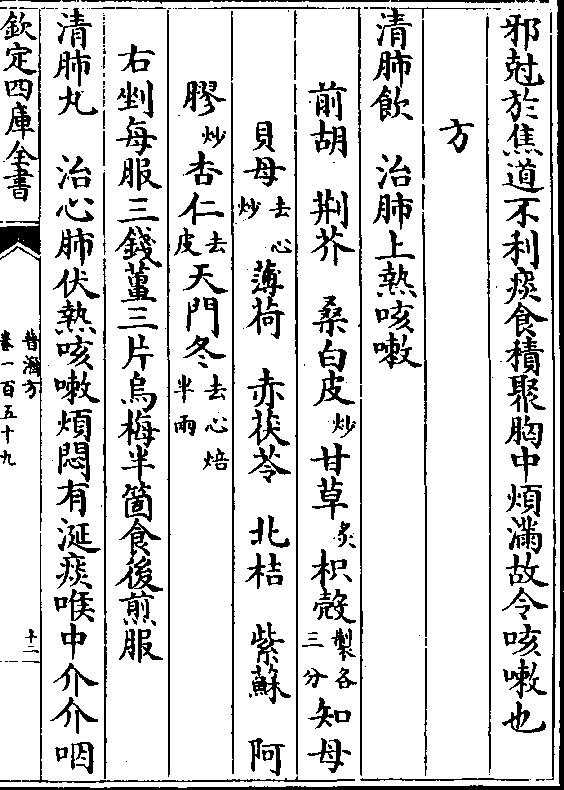 邪尅於焦道不利痰食積聚胸中煩滿故令咳嗽也
方
清肺飲 治肺上熱咳嗽
前胡 荆芥 桑白皮炒 甘草炙 枳殼製各三分 知母
貝母去心炒 薄荷 赤茯苓 北桔 紫蘇 阿
膠炒 杏仁去皮 天門冬去心焙半兩
右剉每服三錢薑三片烏梅半箇食後煎服
清肺丸 治心肺伏熱咳嗽煩悶有涎痰喉中介介咽
欽定四庫全書
普濟方
卷一百五十九
十二